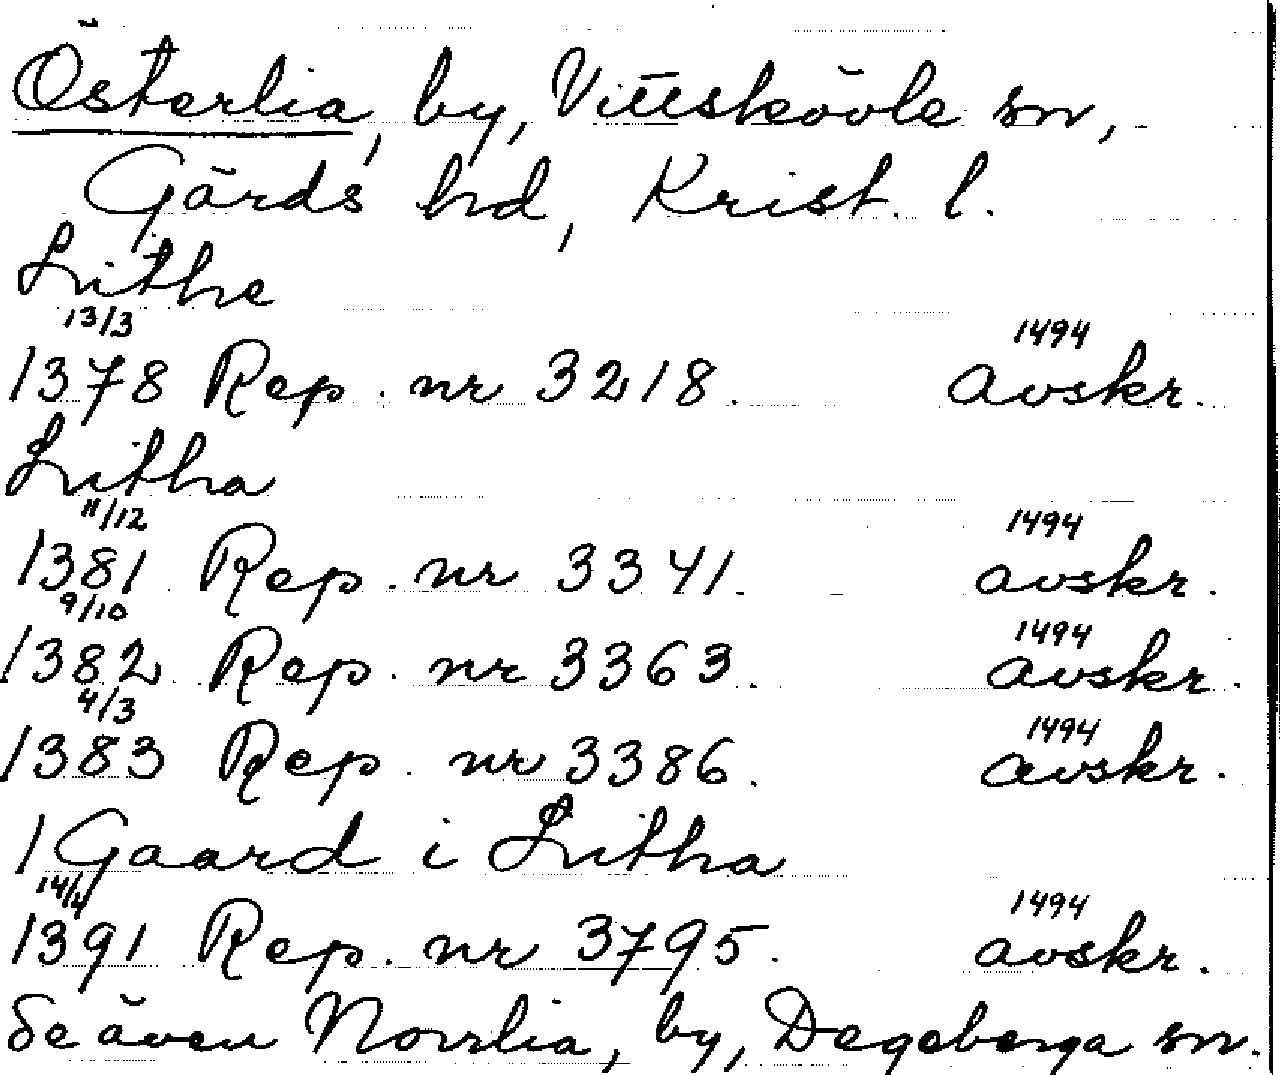 Österlia, by, Vittskövle sn,
Gärds hd, Krist. l.
Lithe
13/3
1494
1378 Rep. nr 3218. avskr.
Litha
11/12
1494
1381 Rep. nr 3341. avskr.
9/10
1494
1382 Rep. nr 3363. avskr.
4/3
1494
1383 Rep. nr 3386. avskr.
1 Gaard i Litha
14/4
1494
1391 Rep. nr 3795. avskr.
Se även Norrlia, by, Degeberga sn.